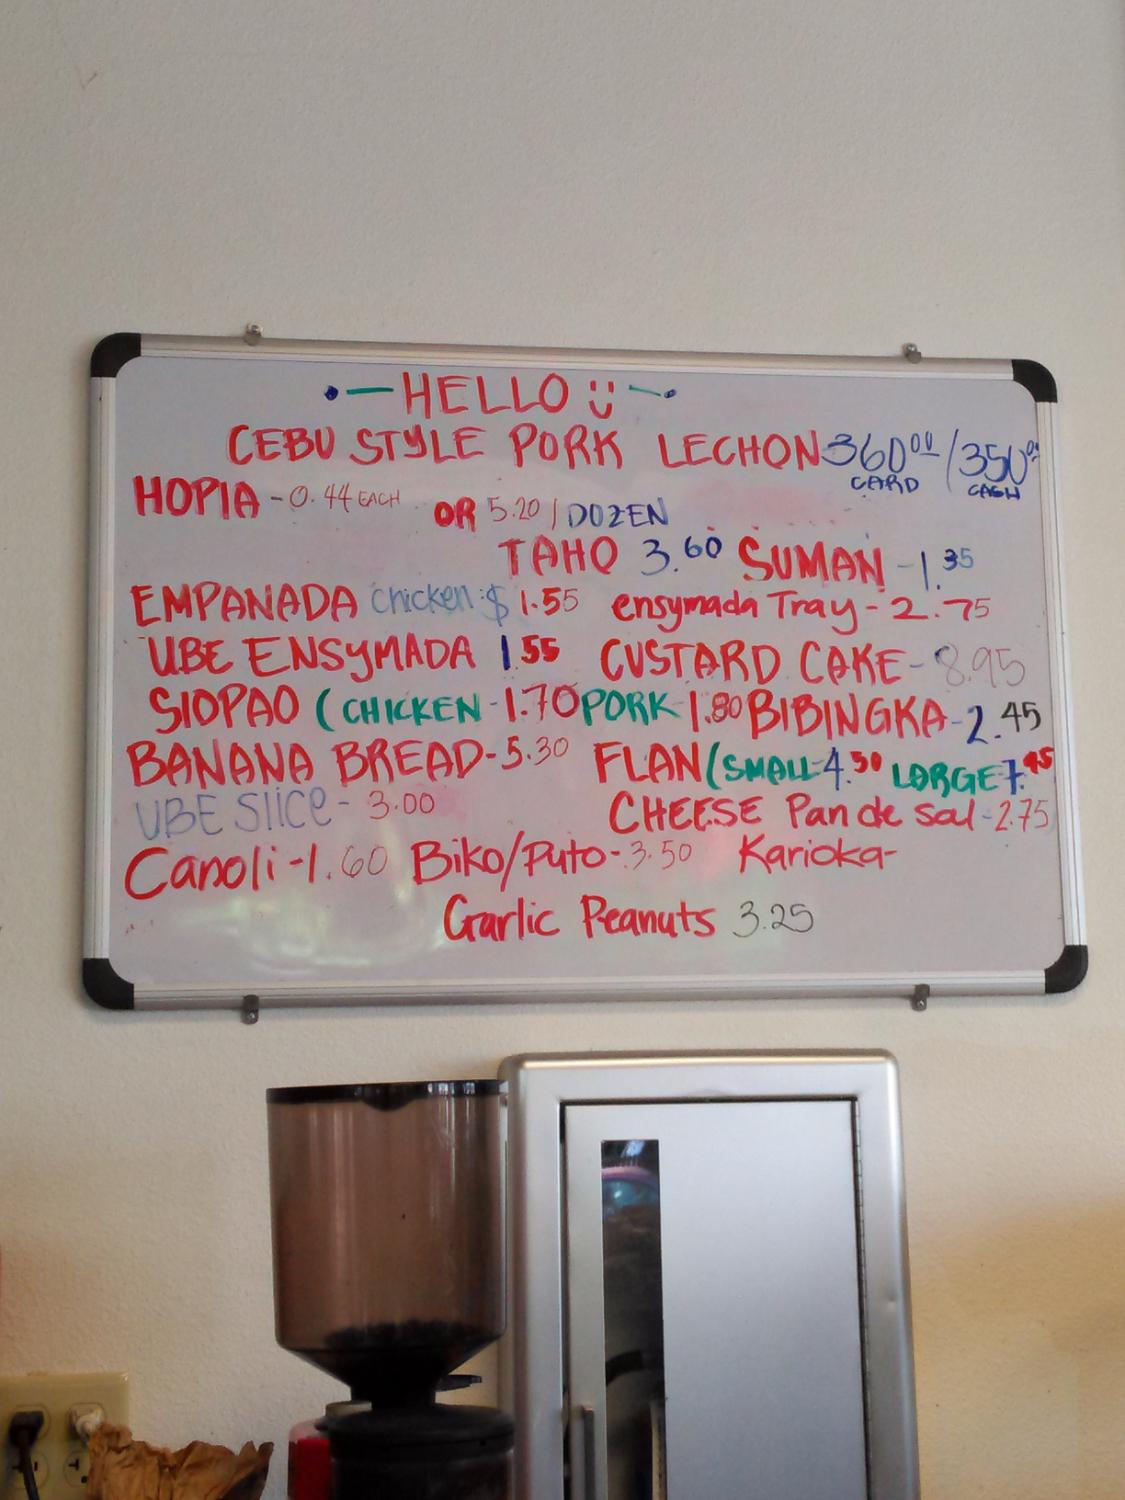 HELLO
CEBU STYLE PORK LECHON 360⁰⁰ CARD / 350⁰⁰ CASH
HOPIA - 0.44 EACH OR 5.20 / DOZEN
TAHO 3.60 SUMAN - 1.35
EMPANADA chicken: $1.55 ensymada Tray - 2.75
UBE ENSYMADA 1.55 CUSTARD CAKE - 8.95
SIOPAO (CHICKEN - 1.70 PORK - 1.80 BIBINGKA - 2.45
BANANA BREAD - 5.30 FLAN (SMALL - 4.50 LARGE 7.95
UBE Slice - 3.00 CHEESE Pan de sal - 2.75
Canoli - 1.60 Biko/Puto - 3.50 Karioka -
Garlic Peanuts 3.25